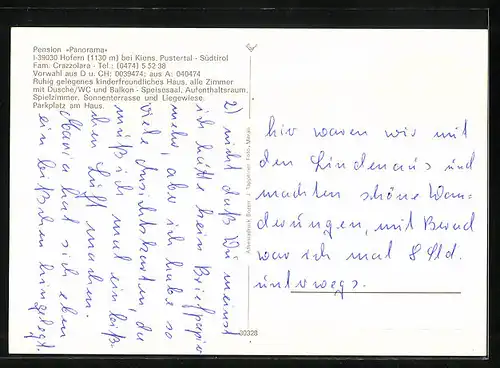 Pension »Panorama«
I-39030 Hofern (1130 m) bei Kiens, Pustertal - Südtirol
Fam. Crazzolara - Tel.: (0474) 5 52 38
Vorwahl aus D u. CH: 0039474; aus A: 040474
Ruhig gelegenes kinderfreundliches Haus, alle Zimmer
mit Dusche/WC und Balkon - Speisesaal, Aufenthaltsraum,
Spielzimmer, Sonnenterrasse und Liegewiese.
Parkplatz am Haus.
2) nicht daß Du meinst
ich hätte kein Briefpapier
mehr, aber ich habe so
viele Ansichtskarten, da
muß ich mal ein biß
chen Luft machen.
Maria hat sich eben
ein bißchen hingelegt.
30328
hier waren wir mit
den Lindenaus und
machten schöne Wan-
derungen, mit
war ich mal 8 Std.
unterwegs.